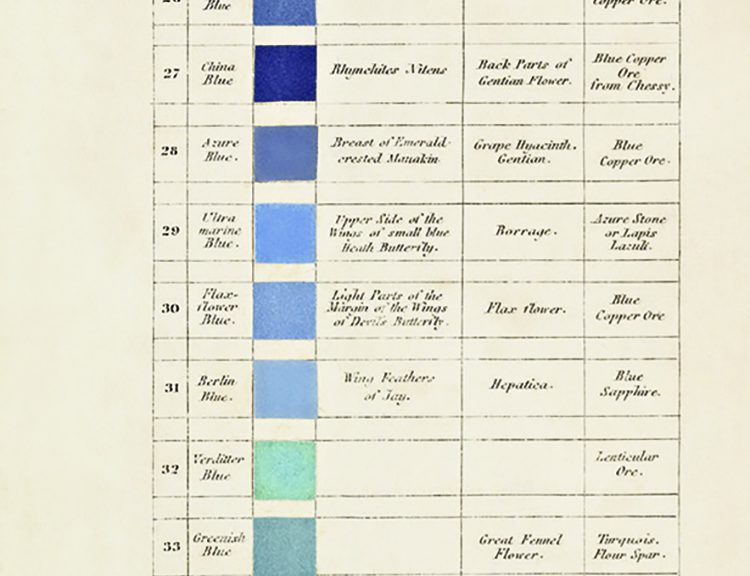 Blue
Copper Ore.
27
China
Blue
Rhynchites Nitens
Back Parts of
Gentian Flower.
Blue Copper
Ore
from Chessy.
28
Azure
Blue.
Breast of Emerald-
crested Manakin
Grape Hyacinth.
Gentian.
Blue
Copper Ore.
29
Ultra
marine
Blue.
Upper Side of the
Wings of small blue
Heath Butterfly.
Borrage.
Azure Stone
or Lapis
Lazuli.
30
Flax-
flower
Blue.
Light Parts of the
Margin of the Wings
of Devil's Butterfly.
Flax flower.
Blue
Copper Ore
31
Berlin
Blue.
Wing Feathers
of Jay.
Hepatica.
Blue
Sapphire.
32
Verditter
Blue
Lenticular
Ore.
33
Greenish
Blue
Great Fennel
Flower.
Turquois.
Flour Spar.